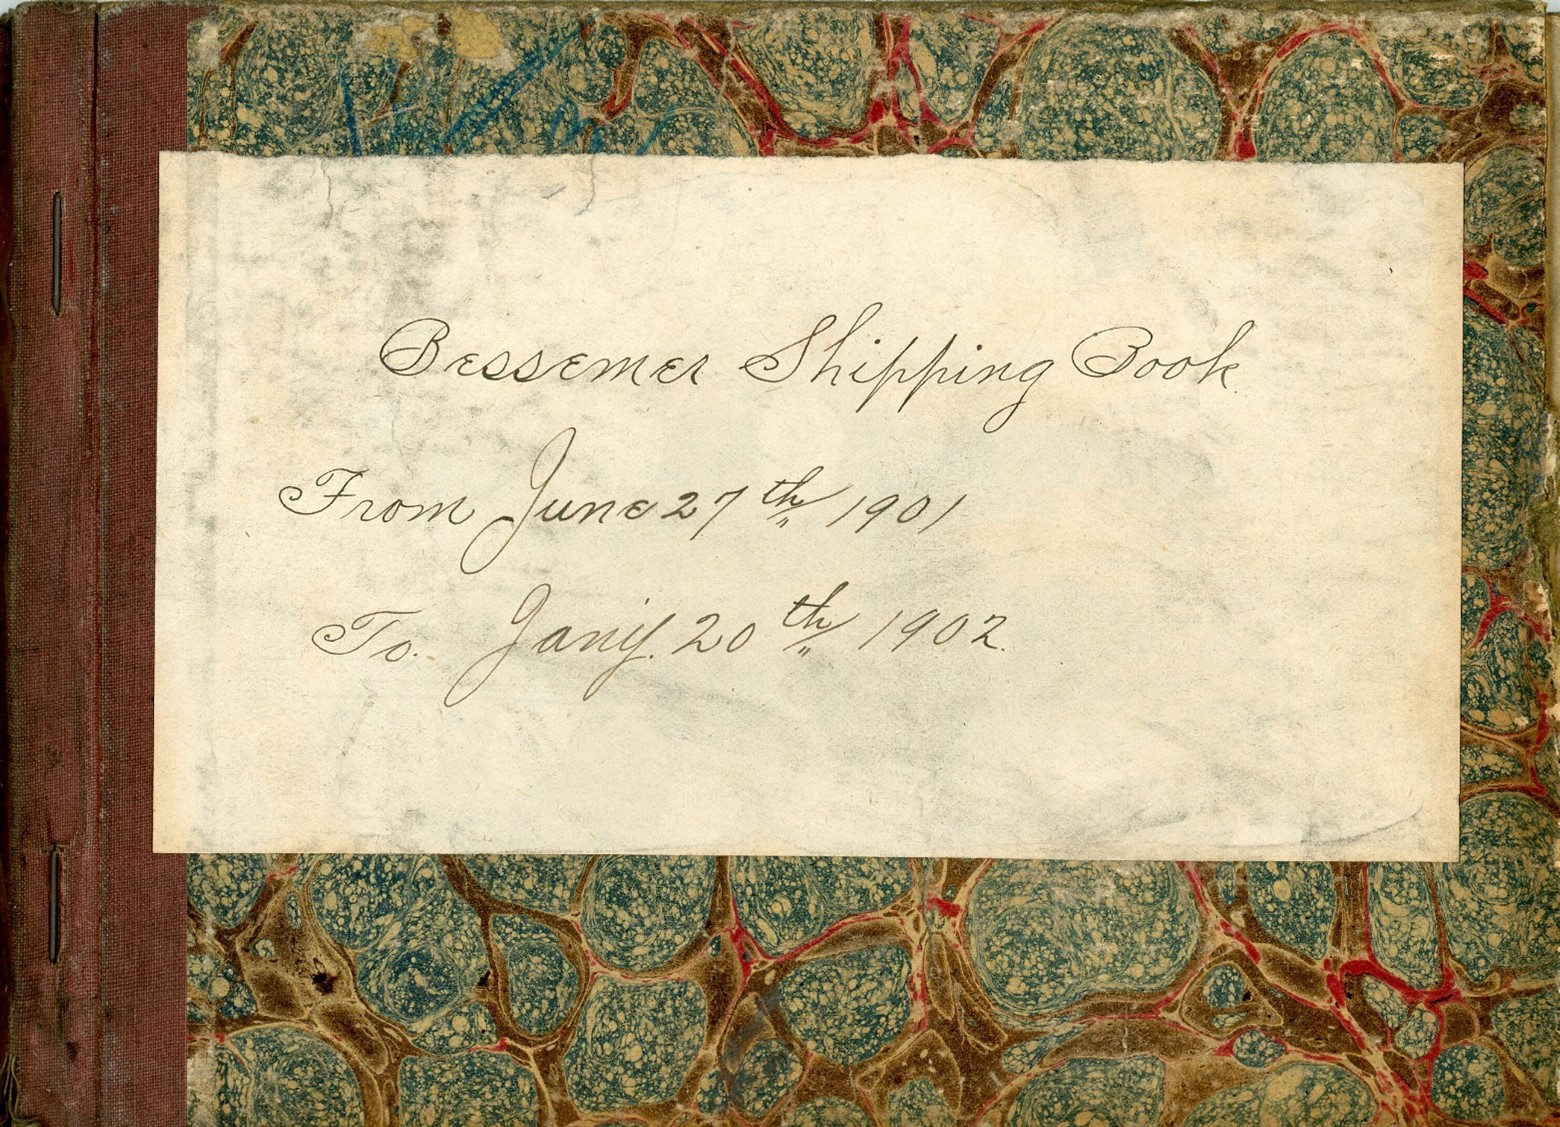 Bessemer Shipping Book.
From June 27th 1901
To. Jan'y. 20th 1902.